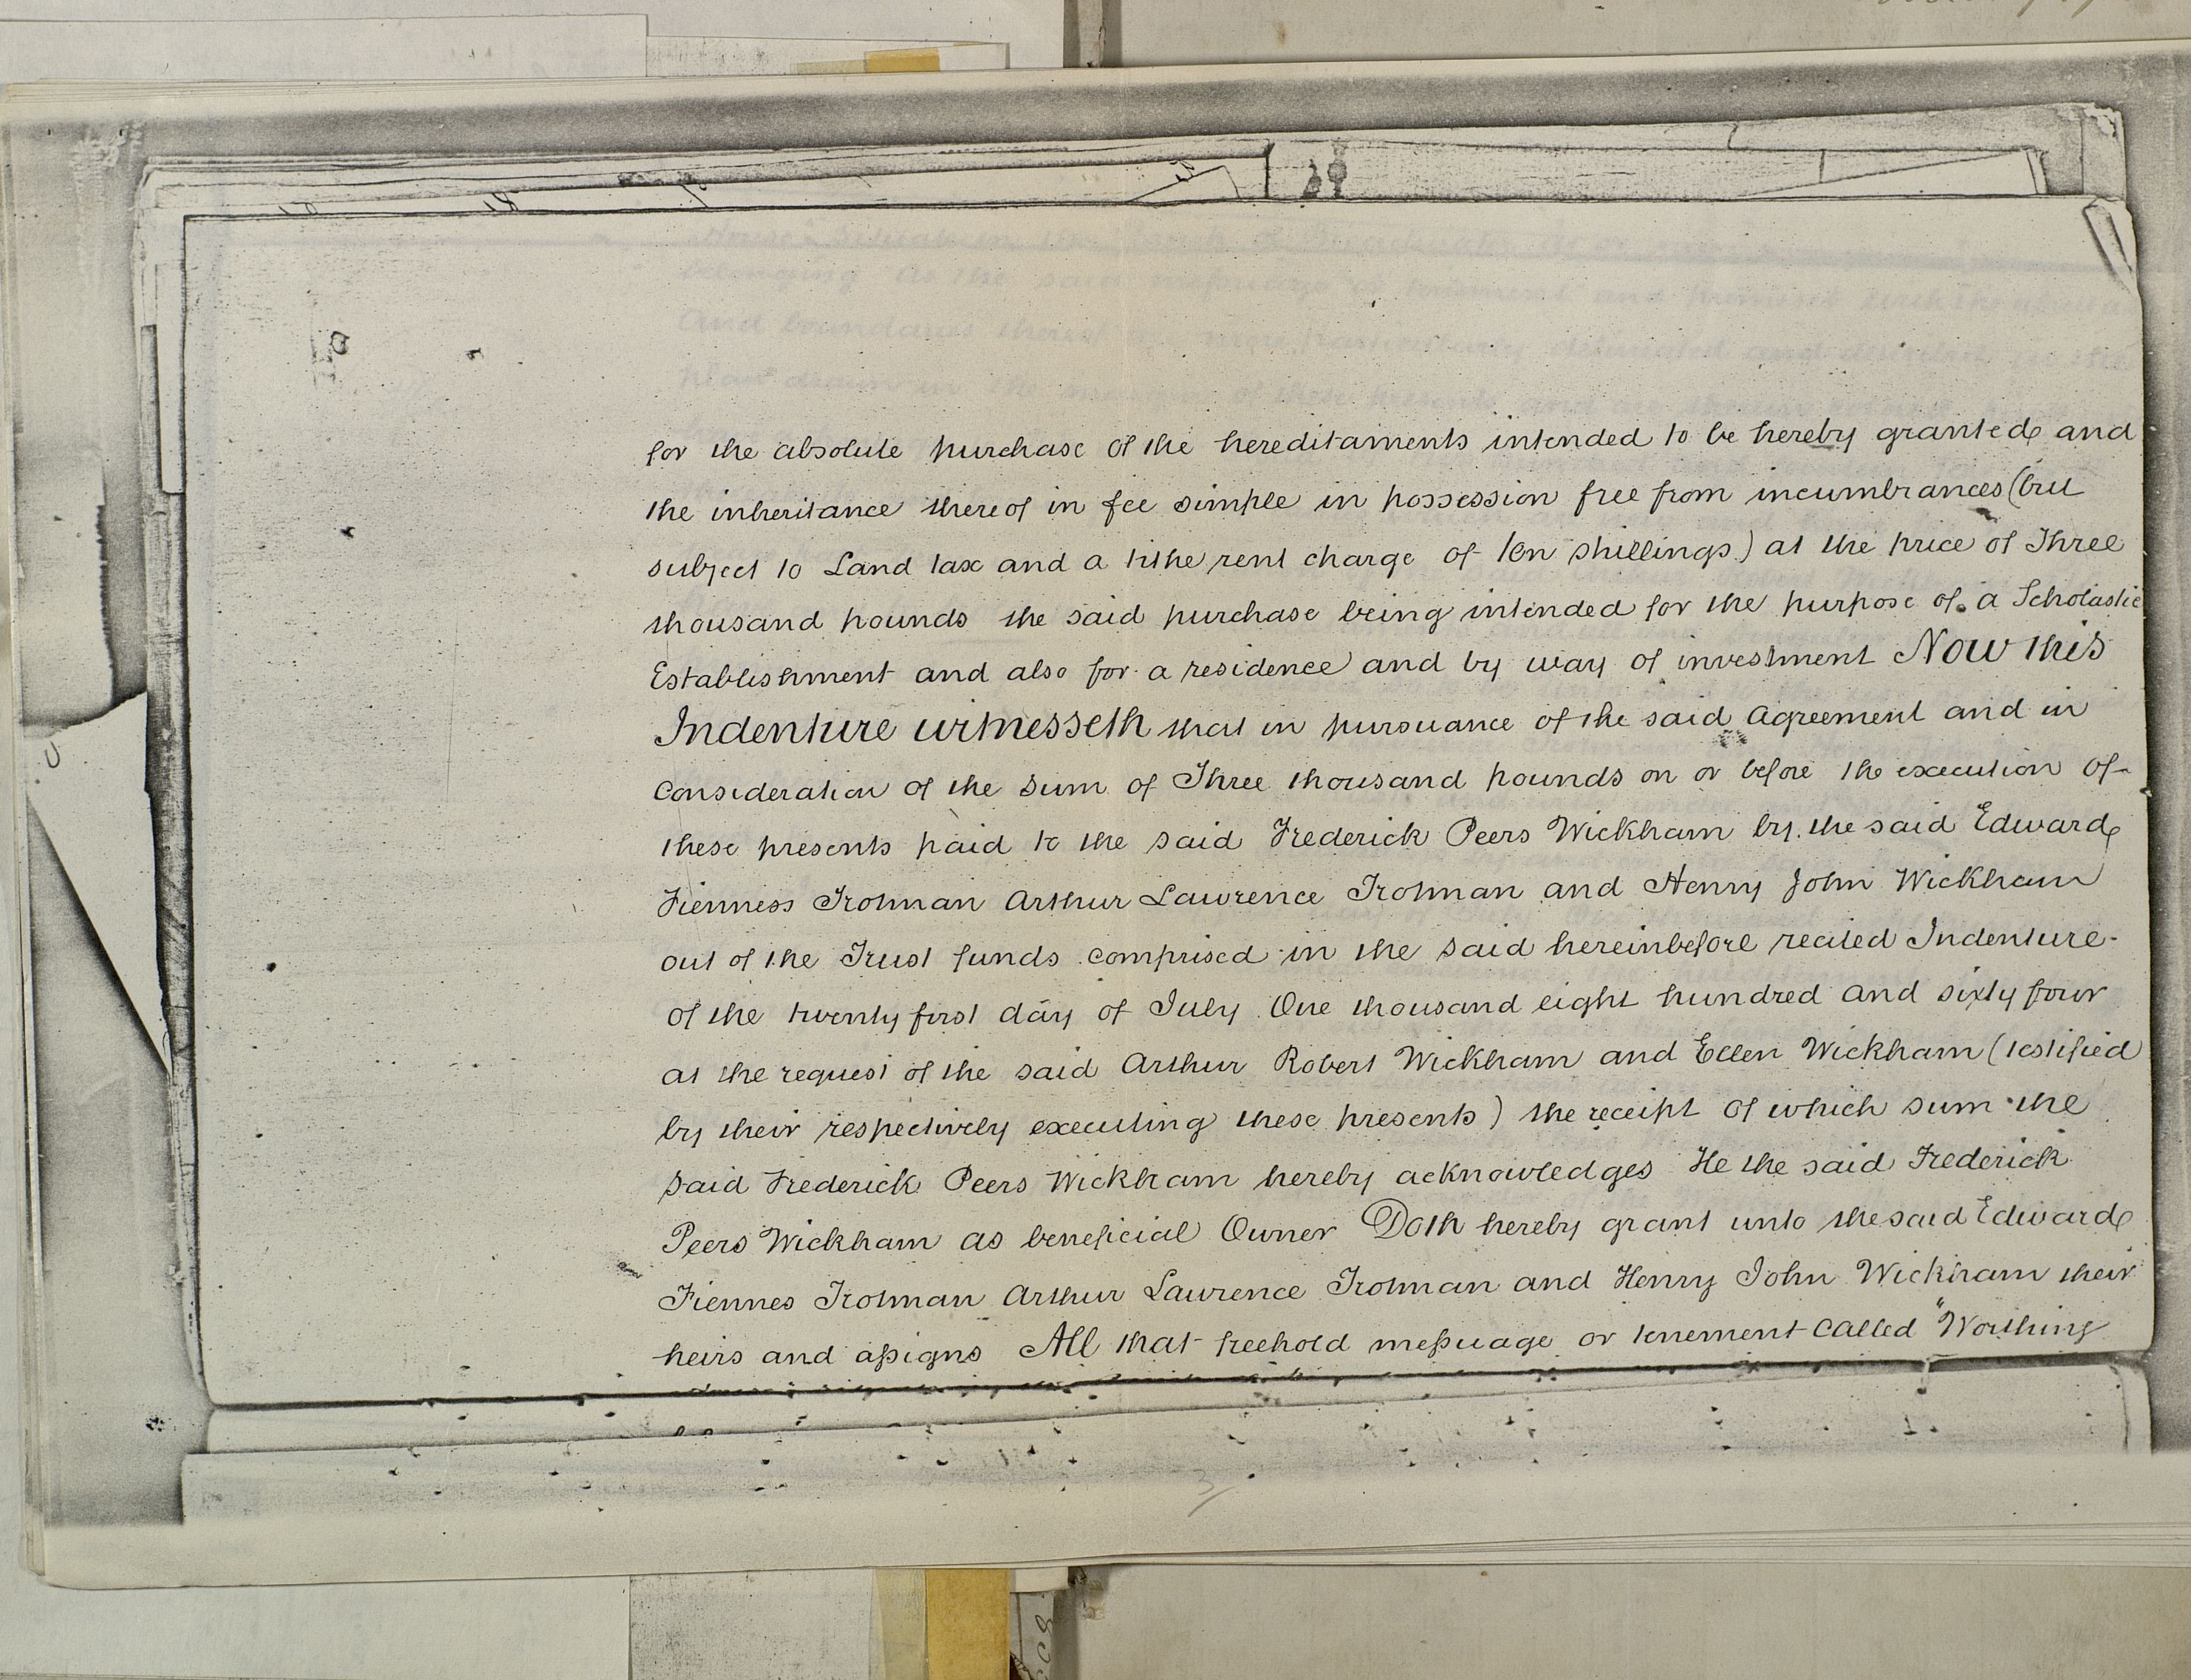 for the absolute purchase of the hereditaments intended to be hereby granted and
the inheritance thereof in fee simple in possession free from incumbrances (but
subject to Land tax and a tithe rent charge of ten shillings) at the price of Three
thousand pounds the said purchase being intended for the purpose of a Scholastic
Establishment and also for a residence and by way of investment Now this
Indenture witnesseth that in pursuance of the said Agreement and in
consideration of the sum of Three thousand pounds on or before the execution of
these presents paid to the said Frederick Peers Wickham by the said Edward
Fienness Trotman Arthur Lawrence Trotman and Henry John Wickham
out of the Trust funds comprised in the said hereinbefore recited Indenture
of the twenty first day of July One thousand eight hundred and sixty four
at the request of the said Arthur Robert Wickham and Ellen Wickham (testified
by their respectively executing these presents) the receipt of which sum the
said Frederick Peers Wickham hereby acknowledges He the said Frederick
Peers Wickham as beneficial Owner Doth hereby grant unto the said Edward
Fiennes Trotman Arthur Lawrence Trotman and Henry John Wickham their
heirs and aſsigns All that freehold meſsuage or tenement called "Worthing
3